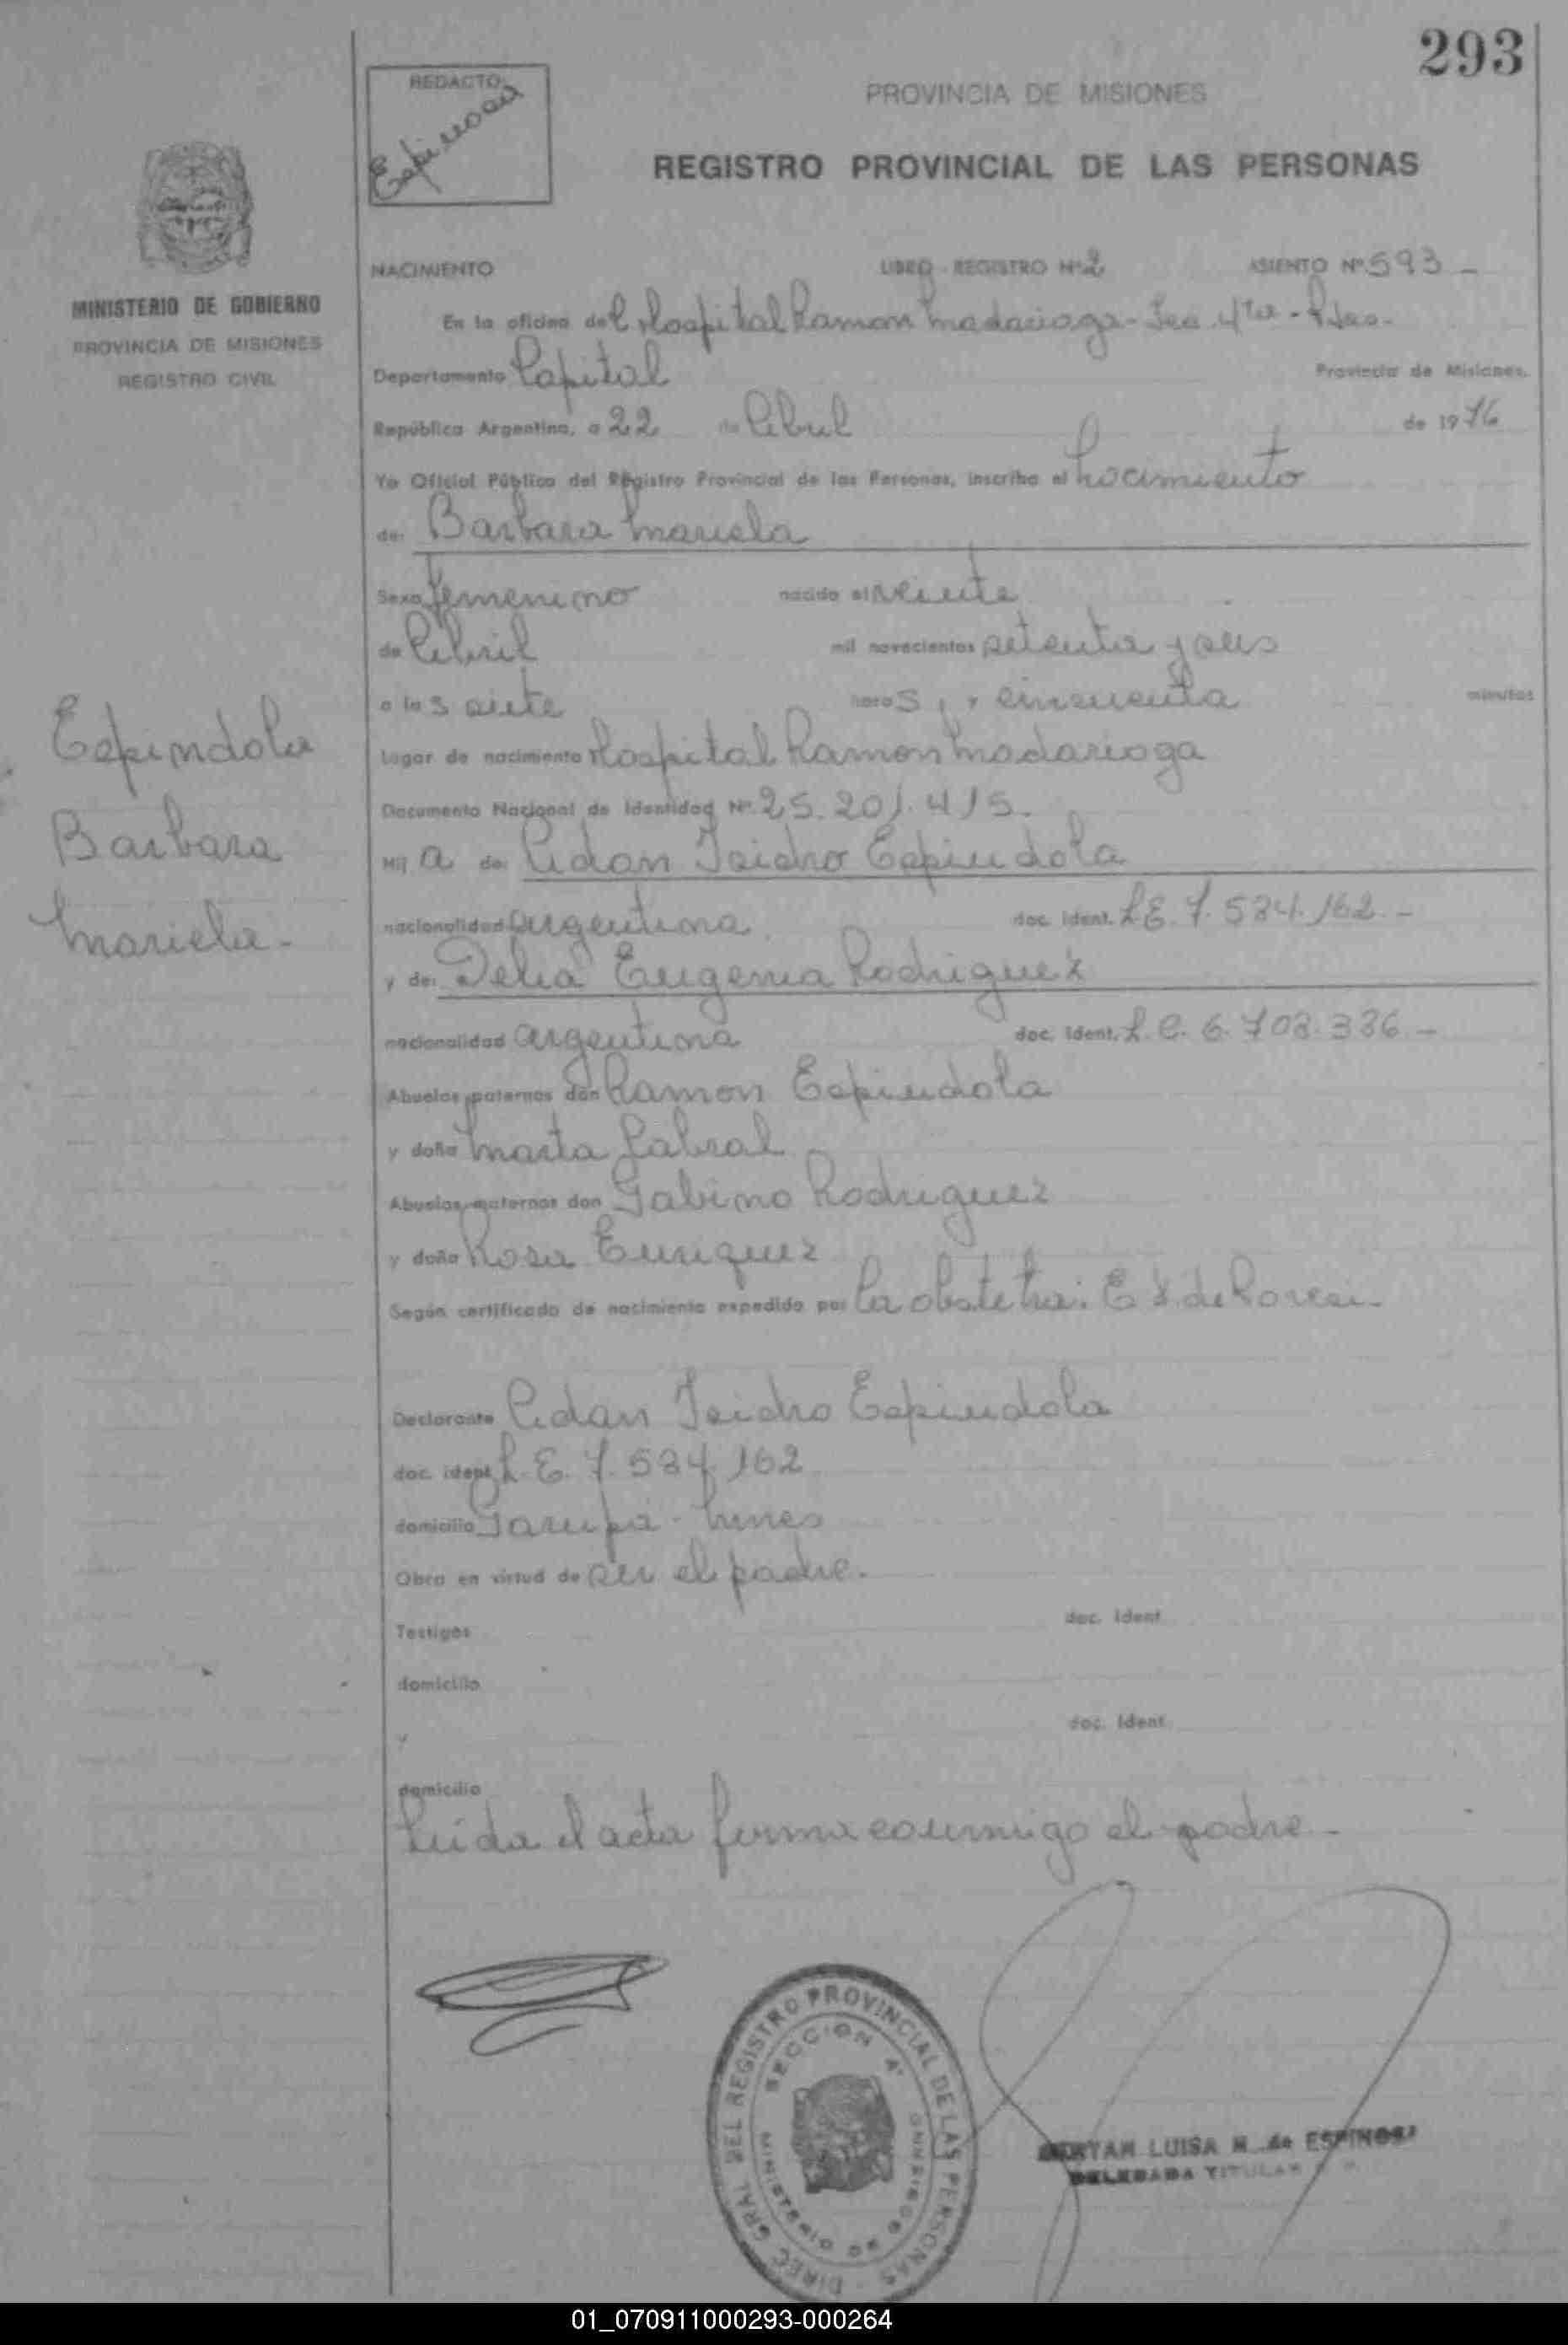 293
REDACTO:
Espinosa
PROVINCIA DE MISIONES
REGISTRO PROVINCIAL DE LAS PERSONAS
MINISTERIO DE GOBIERNO
PROVINCIA DE MISIONES
REGISTRO CIVIL
NACIMIENTO LIBRO REGISTRO Nº 2 ASIENTO Nº 593 -
En la oficina del Hospital Ramon Madariaga - Sec. 4ta - Pdas.
Departamento Capital Provincia de Misiones.
República Argentina, a 22 de Abril de 1976
Yo Oficial Público del Registro Provincial de las Personas, inscribo el nacimiento
de: Barbara Mariela
Sexo femenino nacido el veinte
de Abril mil novecientos setenta y seis
a las siete horas, y cincuenta minutos
Lugar de nacimiento Hospital Ramon Madariaga
Documento Nacional de Identidad Nº 25.201.415.
Hija de: Adan Isidro Espindola
nacionalidad argentina doc. ident. L.E. 7.584.162 -
y de: Delia Eugenia Rodriguez
nacionalidad argentina doc. ident. L.C. 6.708.336 -
Abuelos paternos don Ramon Espindola
y doña Marta Cabral
Abuelos maternos don Gabino Rodriguez
y doña Rosa Enriquez
Según certificado de nacimiento expedido por la obstetra: E
Declarante Adan Isidro Espindola
doc. ident. L.E. 7.584.162
domicilio Garupa - Mnes
Obra en virtud de ser el padre.
Testigos doc. ident.
domicilio
y doc. ident.
domicilio
Leida el acta firma conmigo el padre -
Espindola
Barbara
Mariela -
DIREC. GRAL. DEL REGISTRO PROVINCIAL DE LAS PERSONAS
SECCION 4ª
MINISTERIO DE GOBIERNO
LUISA M. de ESPINOSA
DELEGADA TITULAR
01_070911000293-000264